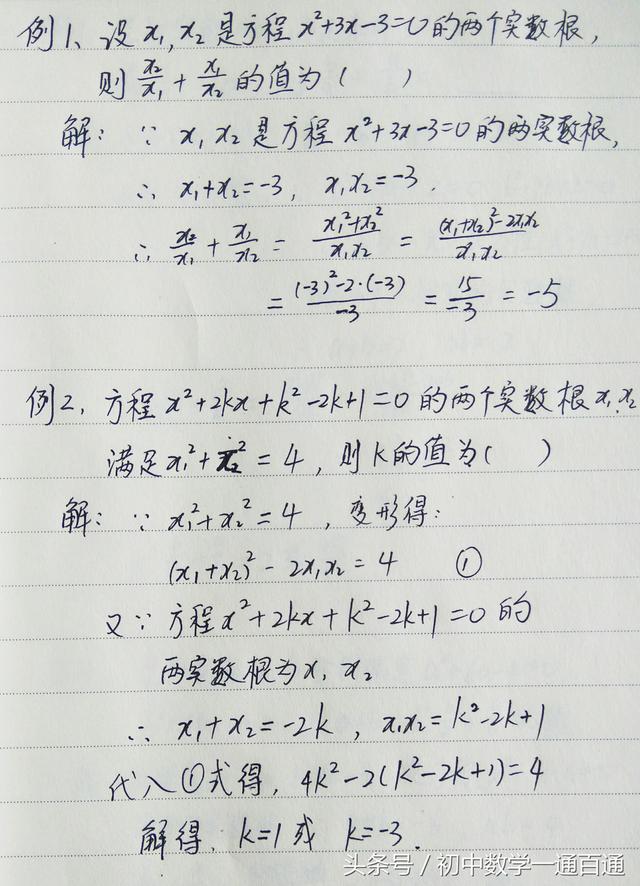 例1、设 x₁, x₂ 是方程 x²+3x-3=0 的两个实数根,
则 x₂/x₁ + x₁/x₂ 的值为 ( )
解: ∵ x₁ x₂ 是方程 x²+3x-3=0 的两实数根,
∴ x₁+x₂=-3, x₁x₂=-3.
∴ x₂/x₁ + x₁/x₂ = (x₁²+x₂²)/(x₁x₂) = ((x₁+x₂)²-2x₁x₂)/(x₁x₂)
= ((-3)²-2·(-3))/(-3) = 15/(-3) = -5
例2, 方程 x²+2kx+k²-2k+1=0 的两个实数根 x₁, x₂
满足 x₁²+x₂²=4, 则 k 的值为 ( )
解: ∵ x₁²+x₂²=4, 变形得:
(x₁+x₂)²-2x₁x₂=4 ①
又∵ 方程 x²+2kx+k²-2k+1=0 的
两实数根为 x₁ x₂
∴ x₁+x₂=-2k, x₁x₂=k²-2k+1
代入①式得, 4k²-2(k²-2k+1)=4
解得, k=1 或 k=-3.
头条号 / 初中数学一通百通